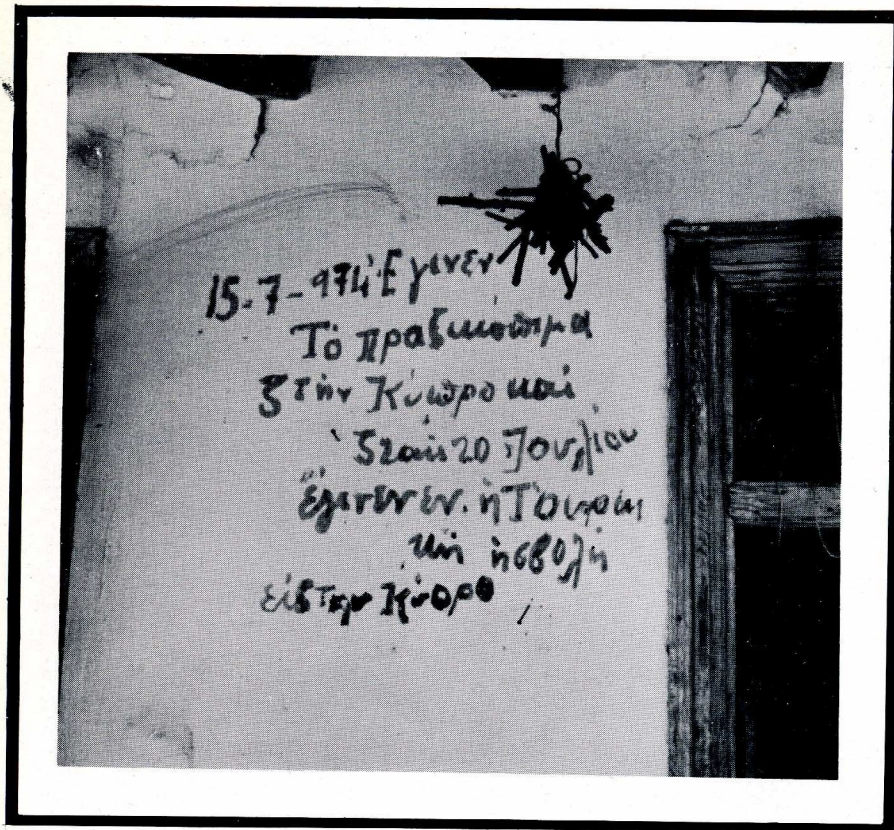 15-7-974 Έγινεν
Τό πραξικόπημα
ςτήν Κύπρο καί
ςταίς 20 Ἰουλίου
έγινεν εν. ἡ Τουρκι
κή ἡσβολή
είς την Κύπρο